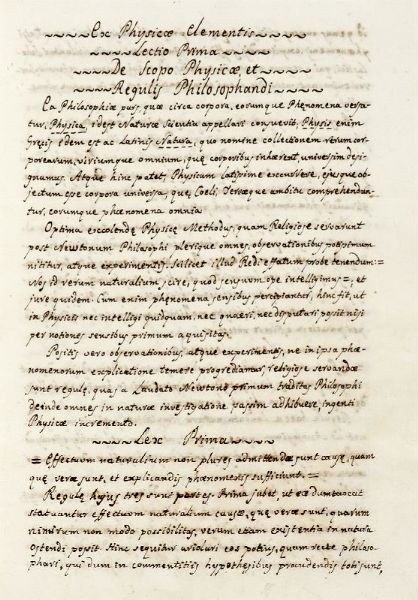 Ex Physicæ Elementis
Lectio Prima
De Scopo Physicæ et
Regulis Philosophandi
Ea Philosophiæ pars, quæ circa corpora, eorumque Phenomena versa-
tur, Physica, idest Naturæ Scientia appellari consuevit. Physis enim
Grecis idem est ac Latinis Natura, quo nomine collectionem rerum cor-
porearum, viriumque omnium, quę corporibus inhærent, universim desi-
gnamus. Atque hinc patet, Physicam latissime excurrere, ejusque ob-
jectum esse corpora universa, quę Coeli, Terræque ambitu comprehendun-
tur, eorumque phænomena omnia.
Optima excolendę Physicę Methodus, quam Religiose servarunt
post Newtonum Philosophi plerique omnes, observationibus potissimum
nititur, atque experimentis. Scilicet illud Redi effatum probe tenendum =
Nos id rerum naturalium scire, quod sensuum ope intelligimus =, et
jure quidem. Cum enim phenomena sensibus percipiantur, hinc fit, ut
in Physicis nec intelligi quidquam, nec quæri, nec disputari possit nisi
per notiones sensibus primum acquisitas.
Positis vero observationibus, atque experimentis, ne in ipsa phæ-
nomenorum explicatione temere progrediamur, religiose servandæ
sunt regulę, quas a Laudato Newtono primum traditas Philosophi
deinde omnes in naturæ investigatione passim adhibuere, ingenti
Physicæ incremento.
Lex Prima
= Effectuum naturalium non plures admittendæ sunt causę, quam
quę veræ sunt, et explicandis phænomenis sufficiunt. =
Regulę hujus tres sunt partes. Prima jubet, ut eæ dumtaxat
statuantur effectuum naturalium causæ, quę veræ sunt, quarum
nimirum non modo possibilitas, verum etiam existentia in natura
ostendi possit. Hinc sequitur arioları eos potius, quam recte philoso-
phari, qui dum in commentitiis hypothesibus procudendis toti sunt,